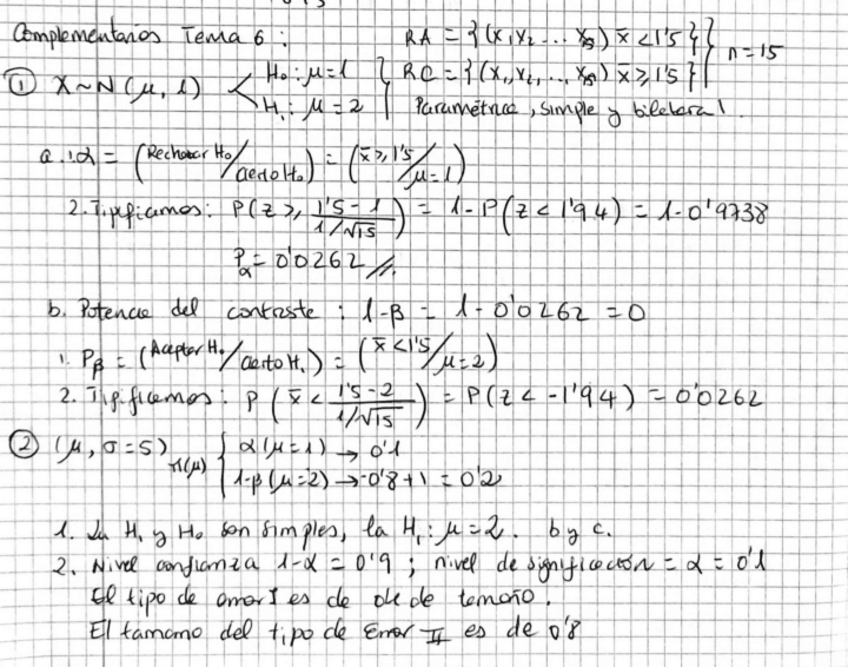 Complementarios Tema 6: RA = {(x₁x₂ ... x₁₅) x̄ < 1'5}
① X~N(μ, 1) H₀: μ=1 RC = {(x₁, x₂, ... x₁₅) x̄ ≥ 1'5} n=15
H₁: μ=2 Paramétrica, simple y bilateral.
a. 1. α = (Rechazar H₀/cierto H₀) = (x̄ ≥ 1'5/μ=1)
2. Tipificamos: P(z ≥ 1'5 - 1/1/√15) = 1 - P(z < 1'94) = 1 - 0'9738
Pα = 0'0262 //.
b. Potencia del contraste: 1-β = 1 - 0'0262 = 0
1. Pβ = (Aceptar H₀/cierto H₁) = (x̄ < 1'5/μ=2)
2. Tipificamos: P(x̄ < 1'5 - 2/1/√15) = P(z < -1'94) = 0'0262
② (μ, σ=5) π(μ) α(μ=1) → 0'1
1-β(μ=2) → -0'8 + 1 = 0'2
1. La H₁ y H₀ son simples, la H₁: μ=2. b y c.
2. Nivel confianza 1-α = 0'9; nivel de significación = α = 0'1
El tipo de error I es de de tamaño.
El tamano del tipo de Error II es de 0'8